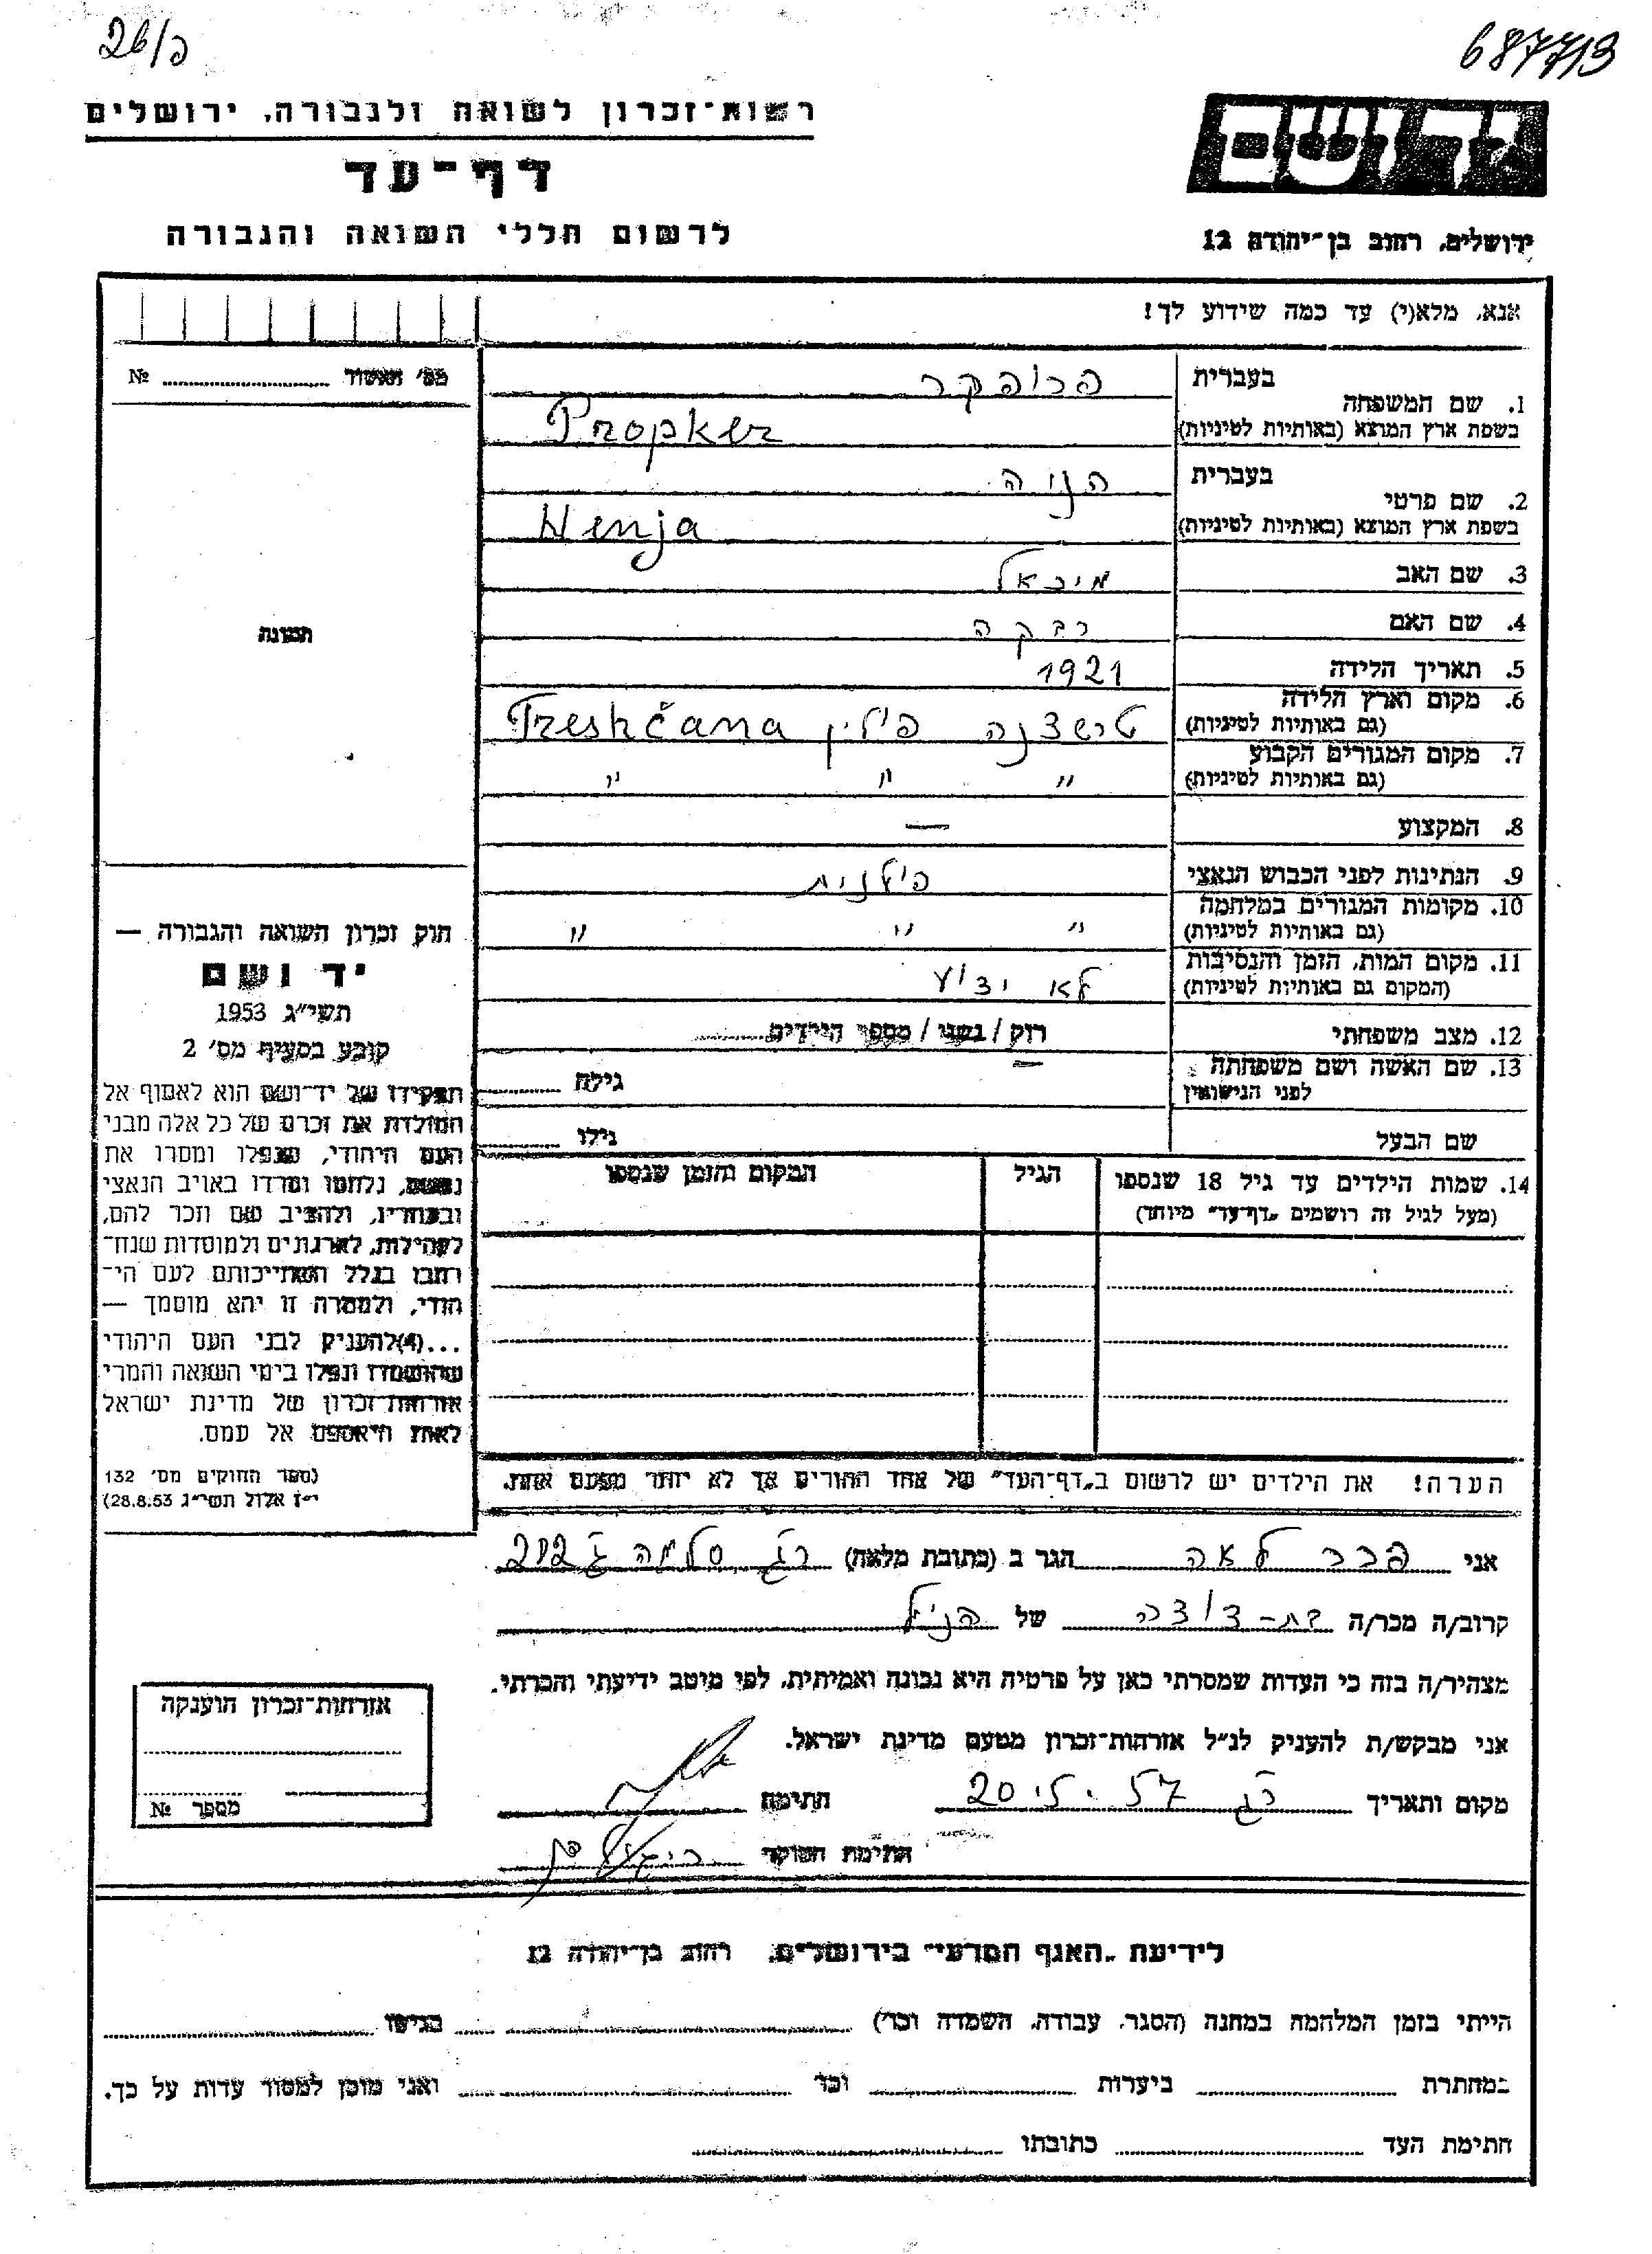 26/פ
687713
רשות-זכרון לשואה ולגבורה, ירושלים
דף-עד
לרשום חללי השואה והגבורה
ידושם
ירושלים, רחוב בן-יהודה 12
אנא, מלא(י) עד כמה שידוע לך!
מס׳ האשור № ........
תמונה
1. שם המשפחה בעברית פרופקר
בשפת ארץ המוצא (באותיות לטיניות) Propker
2. שם פרטי בעברית הניה
בשפת ארץ המוצא (באותיות לטיניות) Henja
3. שם האב מיכאל
4. שם האם רבקה
5. תאריך הלידה 1921
6. מקום וארץ הלידה (גם באותיות לטיניות) טרשצנה פולין Treshčana
7. מקום המגורים הקבוע (גם באותיות לטיניות) " " "
8. המקצוע —
9. הנתינות לפני הכבוש הנאצי פולנית
10. מקומות המגורים במלחמה (גם באותיות לטיניות) " " "
11. מקום המות, הזמן והנסיבות (המקום גם באותיות לטיניות) לא ידוע
12. מצב משפחתי רוק / נשוי / מספר הילדים ........
13. שם האשה ושם משפחתה לפני הנישואין — גילה ........
שם הבעל גילו ........
14. שמות הילדים עד גיל 18 שנספו הגיל המקום והזמן שנספו
(מעל לגיל זה רושמים „דף-עד" מיוחד)
הערה! את הילדים יש לרשום ב„דף-העד" של אחד ההורים אך לא יותר מפעם אחת.
חוק זכרון השואה והגבורה —
יד ושם
תשי"ג 1953
קובע בסעיף מס׳ 2
תפקידו של יד-ושם הוא לאסוף אל
המולדת את זכרם של כל אלה מבני
העם היהודי, שנפלו ומסרו את
נפשם, נלחמו ומרדו באויב הנאצי
ובעוזריו, ולהציב שם וזכר להם,
לקהילות, לארגונים ולמוסדות שנח-
רבו בגלל השתייכותם לעם הי-
הודי, ולמטרה זו יהא מוסמך —
...(4)להעניק לבני העם היהודי
שהושמדו ונפלו בימי השואה והמרי
אזרחות-זכרון של מדינת ישראל
לאות היאספם אל עמם.
(ספר החוקים מס׳ 132
י"ז אלול תשי"ג 28.8.53)
אני פרבר לאה הגר ב (כתובת מלאה) רג סלמה ג 212
קרוב/ה מכר/ה בת-דודה של הנ"ל
מצהיר/ה בזה כי העדות שמסרתי כאן על פרטיה היא נכונה ואמיתית, לפי מיטב ידיעתי והכרתי.
אני מבקש/ת להעניק לנ"ל אזרחות-זכרון מטעם מדינת ישראל.
מקום ותאריך רג 20.5.57 חתימה
חתימת הפוקד
אזרחות-זכרון הוענקה
מספר №
לידיעת „האגף המדעי" בירושלים, רחוב בן-יהודה 12
הייתי בזמן המלחמה במחנה (הסגר, עבודה, השמדה וכו׳) ........ בגיטו ........
במחתרת ........ ביערות ........ וכו׳ ........ ואני מוכן למסור עדות על כך.
חתימת העד ........ כתובתו ........